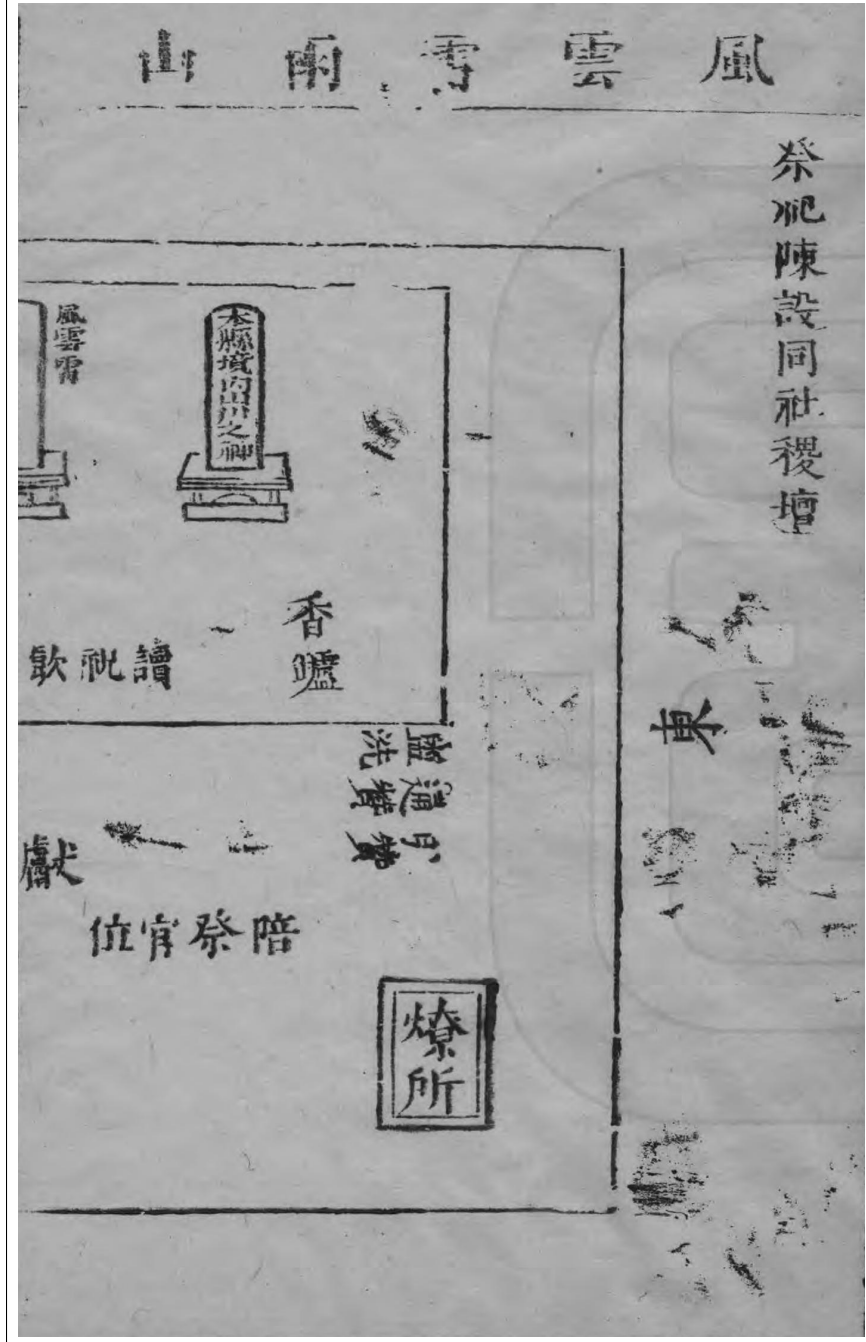 風雲雩雨山
祭祀陳設同社稷壇
本縣境內山川之神
風雲雷
香爐
讀祝飲
東
盥洗
通贊
引贊
獻
陪祭官位
燎所